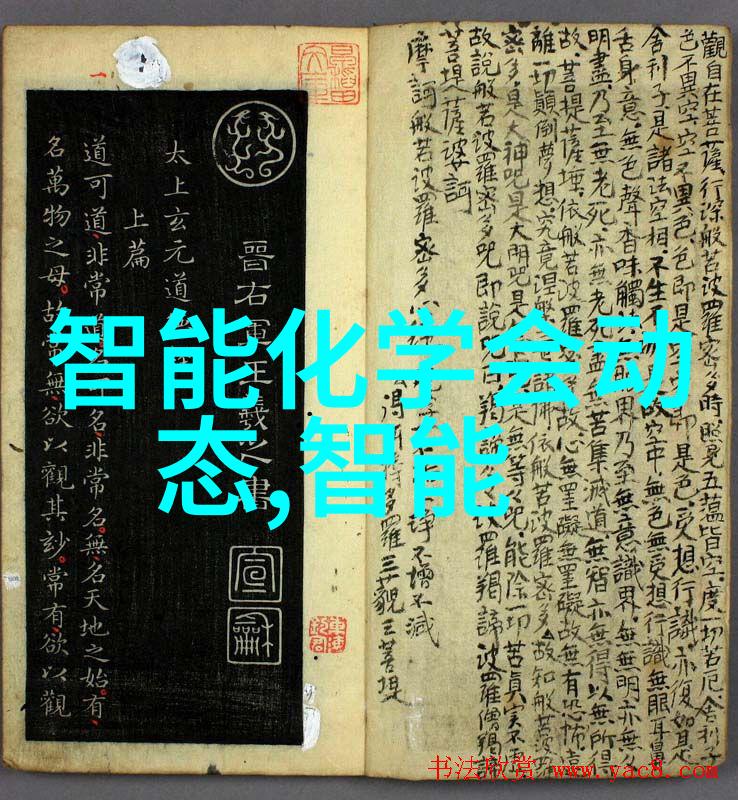 智能化学会动
态,智能
觀自在菩薩行深般若波羅密多時照見五蘊皆空度一切苦厄舍利子
色不異空空不異色色即是空即是色受想行識亦復如是
舍利子是諸法空相不生不是故空中無色無受想行識無眼耳鼻
舌身意無色聲香味觸無眼界乃至無意識界無無明亦無
明盡乃至無老死亦無老死盡無苦集滅道無智亦無得以無所得
故菩提薩埵依般若波羅密多故心無罣礙無罣礙故無有恐怖遠
離一切顛倒夢想究竟涅槃諸佛依般若波羅密多故知般若波
密多是大神咒是大明咒是無等々咒能除一切苦真實不
故說般若波羅密多咒即說咒曰羯諦波羅羯諦波羅僧羯諦
菩提薩婆訶
淨不增不減
摩訶般若波羅密多心
多羅三藐三菩提
晉右軍王羲之書
宣龢
太上玄元道
上篇
道可道非常道名非常名無名天地之始有
名萬物之母故常無欲以觀其妙常有欲以觀
书法欣赏 www.yac8.com